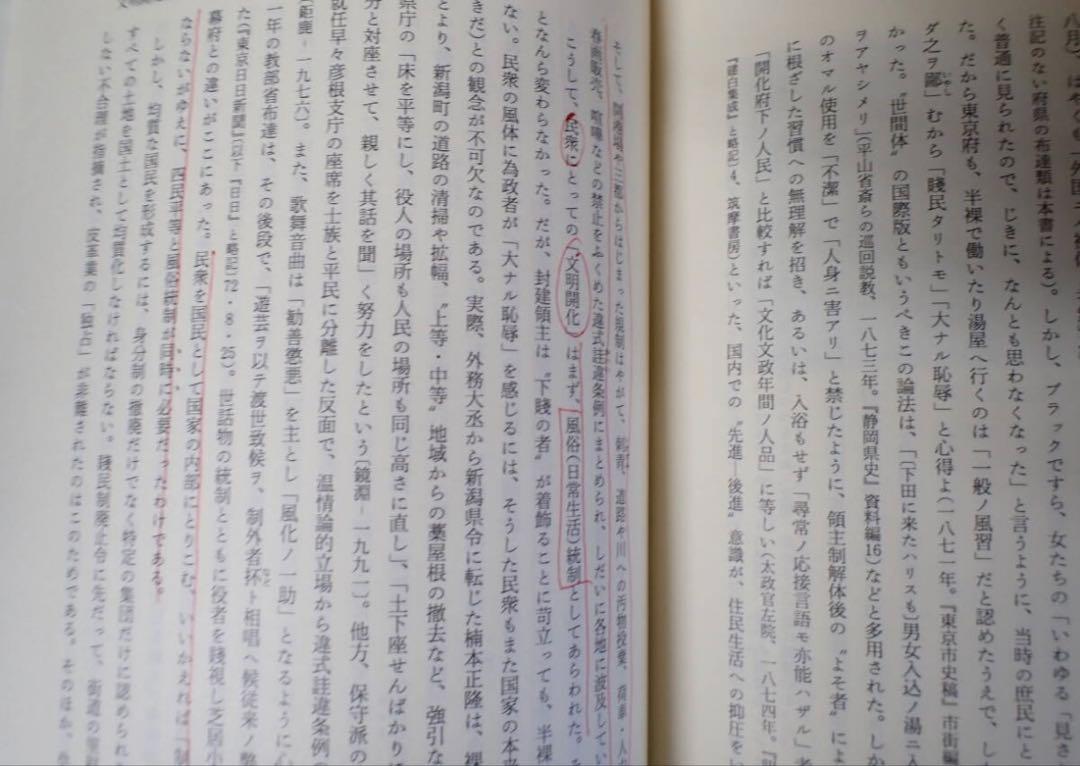 八月)、はやく
注記のない府県の布達類は本書による)。しかし、ブラックですら、女たちの「いわゆる「見さ
く普通に見られたので、じきに、なんとも思わなくなった」と言うように、当時の庶民にと
た。だから東京府も、半裸で働いたり湯屋へ行くのは「一般ノ風習」だと認めたうえで、し
ダ之ヲ鄙」むから「賤民タリトモ」「大ナル恥辱」と心得よ(一八七一年。『東京市史稿』市街編
かった。〝世間体〟の国際版ともいうべきこの論法は、「(下田に来たハリスも)男女入込ノ湯ニ入
ヲアヤシメリ」(平山省斎らの巡回説教、一八七三年。『静岡県史』資料編16)などと多用された。しか
のオマル使用を「不潔」で「人身ニ害アリ」と禁じたように、領主制解体後の〝よそ者〟によ
に根ざした習慣への無理解を招き、あるいは、入浴もせず「尋常ノ応接言語モ亦能ハザル」者
「開化府下ノ人民」と比較すれば「文化文政年間ノ人品」に等しい(太政官左院、一八七四年。『
『建白集成』と略記)4、筑摩書房)といった、国内での〝先進―後進〟意識が、住民生活への抑圧を
そして、開港場や三都からはじまった規制はやがて、刺青、道路や川への汚物投棄、荷車・人
春画販売、喧嘩などの禁止をふくめた違式詿違条例にまとめられ、しだいに各地に波及してい
こうして、民衆にとっての「文明開化」はまず、風俗(日常生活)統制としてあらわれた。そ
となんら変わらなかった。だが、封建領主は〝下賤の者〟が着飾ることに苛立っても、半裸
ない。民衆の風体に為政者が「大ナル恥辱」を感じるには、そうした民衆もまた国家の本
きだ)との観念が不可欠なのである。実際、外務大丞から新潟県令に転じた楠本正隆は、裸
とより、新潟町の道路の清掃や拡幅、〝上等・中等〟地域からの藁屋根の撤去など、強引な
県庁の「床を平等にし、役人の場所も人民の場所も同じ高さに直し」、「土下座せんばかりに
分と対座させて、親しく其話を聞」く努力をしたという(鏡淵―一九九一)。他方、保守派の
就任早々彦根支庁の座席を士族と平民に分離した反面で、温情論的立場から違式詿違条例
(鉅鹿―一九七六)。また、歌舞音曲は「勧善懲悪」を主とし「風化ノ一助」となるように心
一年の教部省布達は、その後段で、「遊芸ヲ以テ渡世致候ヲ、制外者抔ト相唱ヘ候従来ノ弊
た(『東京日日新聞』(以下『日日』と略記)72・8・25)。世話物の統制とともに役者を賤視し芝居小
幕府との違いがここにあった。民衆を国民として国家の内部にとりこむ、いいかえれば「制
ならないがゆえに、四民平等と風俗統制が同時に必要だったわけである。
しかし、均質な国民を形成するには、身分制の撤廃だけでなく特定の集団だけに認められ
すべての土地を国土として均質化しなければならない。賤民制廃止令に先だって、街道の
しない不合理が指摘され、皮革業の「独占」が非難されたのはこのためである。そのほか、